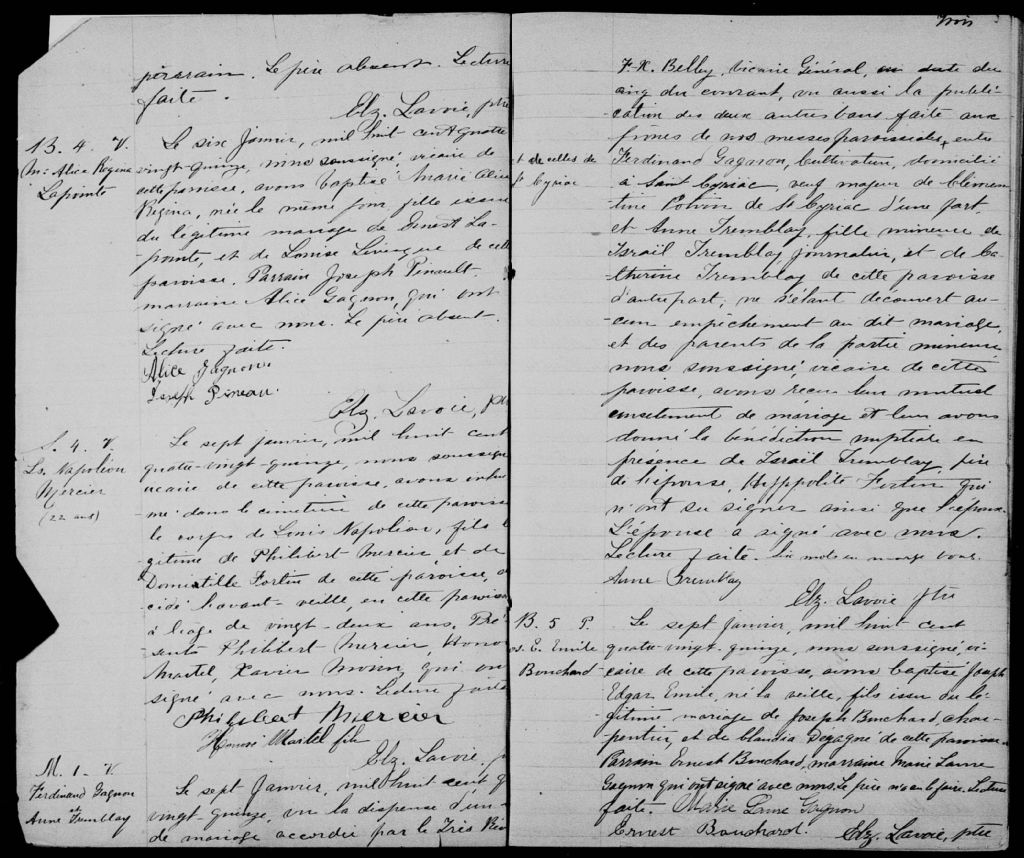 parrain. Le père absent. Lecture
faite.
Elz. Lavoie, ptre
B. 4. V.
M. Alice Régina
Lapointe
Le six Janvier, mil huit cent quatre
vingt-quinze, nous soussigné, vicaire de
cette paroisse, avons baptisé Marie Alice
Régina, née le même jour, fille issue
du légitime mariage de Ernest La-
pointe, et de Louise Lévesque de cette
paroisse. Parrain Joseph Pinault
marraine Alice Gagnon, qui ont
signé avec nous. Le père absent.
Lecture faite.
Alice Gagnon
Joseph Pineau
Elz. Lavoie, ptr
S. 4. V.
Ls. Napoléon
Mercier
(22 ans)
Le sept janvier, mil huit cent
quatre-vingt-quinze, nous soussigné
vicaire de cette paroisse, avons inhu-
mé dans le cimetière de cette paroisse
le corps de Louis Napoléon, fils lé
gitime de Philibert Mercier et de
Domitille Fortin de cette paroisse, dé
cédé l'avant-veille, en cette paroisse
à l'âge de vingt-deux ans. Pré-
sents Philibert Mercier, Honoré
Martel, Xavier Morin, qui ont
signé avec nous. Lecture faite
Philibert Mercier
Honoré Martel fils
Elz. Lavoie, p
M. 1. V.
Ferdinand Gagnon
et
Anne Tremblay
Le sept Janvier, mil huit cent q
vingt-quinze, vu la dispense d'un
de mariage accordée par le Très Rév
Trois
F. X. Belley, Vicaire Général, en date du
cinq du courant, vu aussi la publi-
cation des deux autres bans faite aux
prônes de nos messes paroissiales, entre
et de celles de
St Cyriac
Ferdinand Gagnon, Cultivateur, domicilié
à Saint Cyriac, veuf majeur de Clémen-
tine Potvin de St Cyriac d'une part,
et Anne Tremblay, fille mineure de
Israïl Tremblay journalier, et de Ca-
therine Tremblay de cette paroisse
d'autre part; ne s'étant découvert au-
cun empêchement au dit mariage,
et des parents de la partie mineure
nous soussigné, vicaire de cette
paroisse, avons reçu leur mutuel
consentement de mariage et leur avons
donné la bénédiction nuptiale en
présence de Israïl Tremblay, père
de l'épouse, Hyppolite Fortin qui
n'ont su signer ainsi que l'époux.
L'épouse a signé avec nous.
Lecture faite. Six mots en marge bons.
Anne Tremblay
Elz. Lavoie ptre
B. 5 P.
Js. E. Emile
Bouchard
Le sept janvier, mil huit cent
quatre-vingt-quinze, nous soussigné, vi-
caire de cette paroisse, avons baptisé Joseph
Edgar Emile, né la veille, fils issu du lé-
gitime mariage de Joseph Bouchard, char-
pentier, et de Claudia Dégagné de cette paroisse.
Parrain Ernest Bouchard, marraine Marie Laure
Gagnon qui ont signé avec nous. Le père n'a su le faire. Lecture
faite. Marie Laure Gagnon
Ernest Bouchard. Elz. Lavoie, ptre